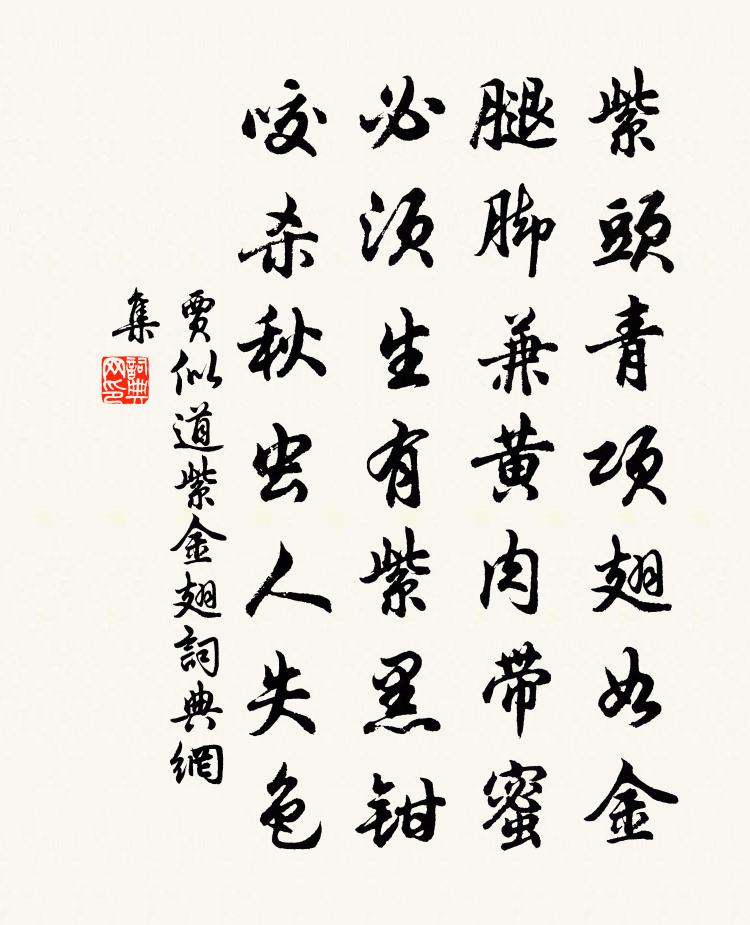 紫頭青项翅如金
腿脚兼黄肉带蜜
必须生有紫黑钳
咬杀秋虫人失色
賈似道紫金翅詞典網
集
詞典网印